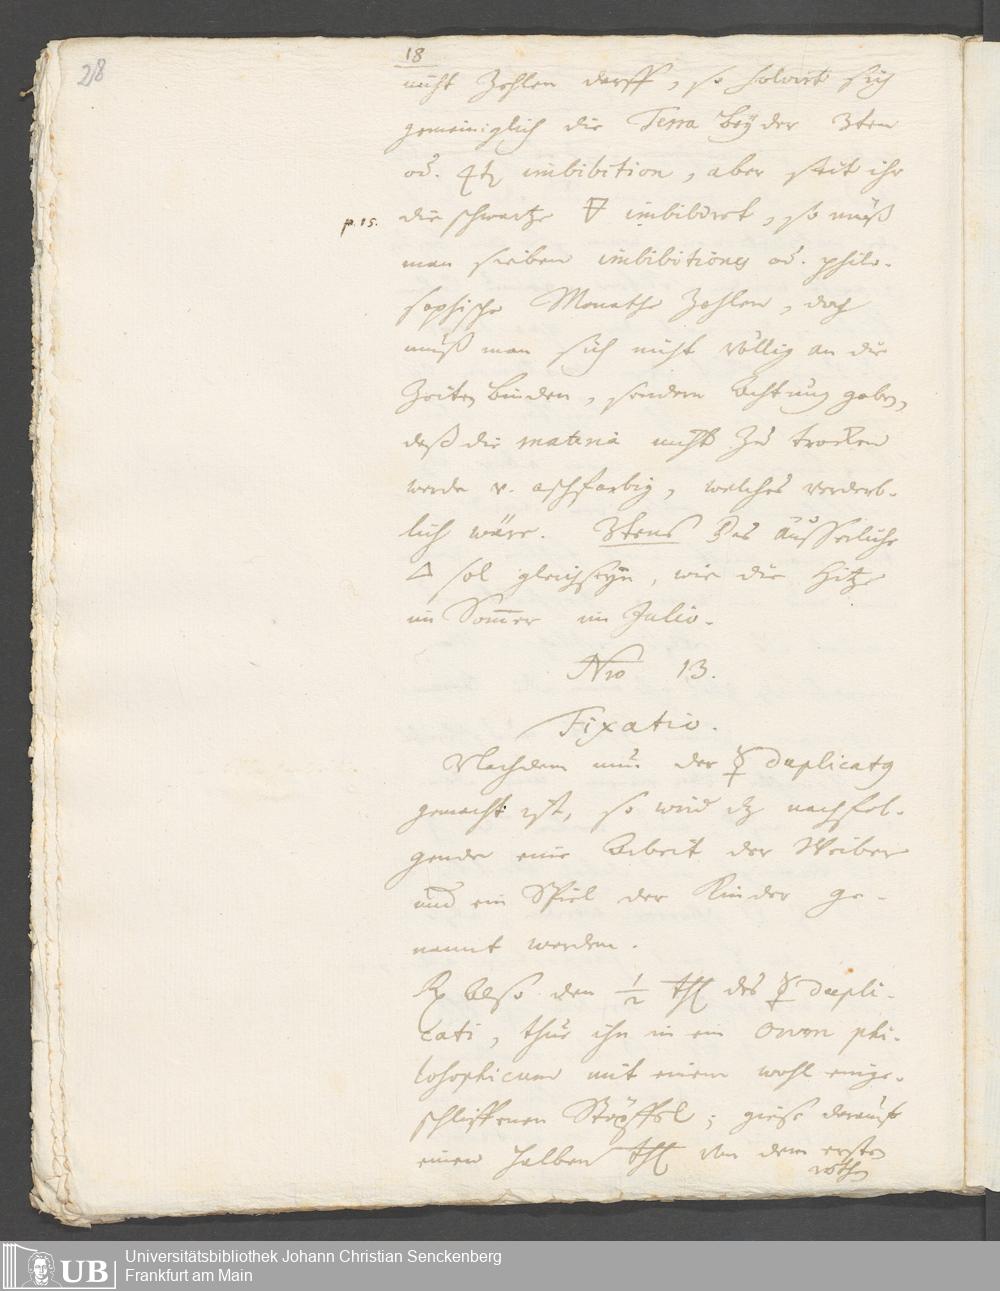 28
18
nicht Zehlen darff, so solvirt sich
gemeiniglich die Terra bey der 3ten
od. 4t imbibition, aber seit ihr
p. 15.
die schwartze 🜃 imbibirt, so muß
man sieben imbibitiones od. philo-
sophische Monathe Zehlen, doch
muß man sich nicht völlig an die
Zeiten binden, sondern Achtung geben,
daß die materia nicht zu trocken
werde v. aschfarbig, welches verderb-
lich wäre. 3tens Das äusserliche
🜂 sol gleich seyn, wie die Hitze
im Som̅er im Julio.
Nro 13.
Fixatio.
Nachdem nun der ☿ duplicatus
gemacht ist, so wird dz nachfol-
gende eine Arbeit der Weiber
und ein Spiel der Kinder ge-
nannt werden.
Rp Also den 1/2 thl des ☿ dupli-
cati, thue ihn in ein Ovum phi-
losophicum mit einem wohl einge-
schliffenen Stöpffel; giese darauf
einen halben thl von dem ersten
rothen
Universitätsbibliothek Johann Christian Senckenberg
Frankfurt am Main
UB